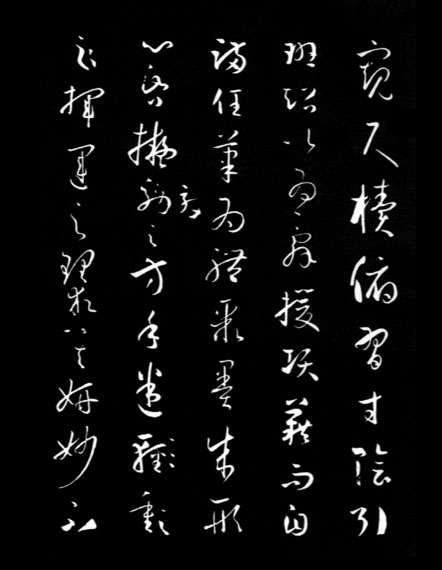 窺尺牘俯習寸陰引
班超以為辭援項籍而自
滿任筆為體聚墨成形
心昏擬效之方手迷
揮運之理求其妍妙不